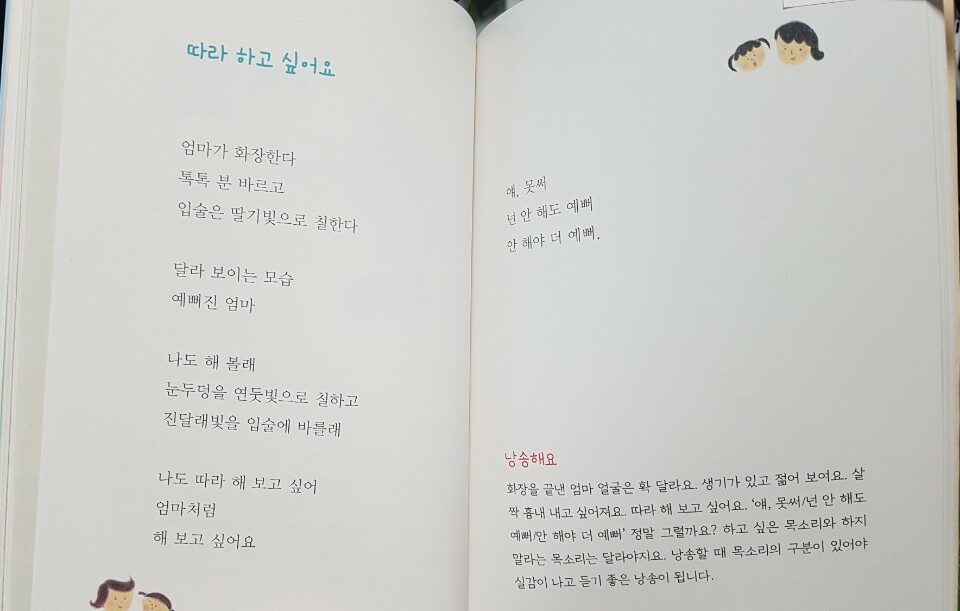 따라 하고 싶어요
엄마가 화장한다
톡톡 분 바르고
입술은 딸기빛으로 칠한다
달라 보이는 모습
예뻐진 엄마
나도 해 볼래
눈두덩을 연둣빛으로 칠하고
진달래빛을 입술에 바를래
나도 따라 해 보고 싶어
엄마처럼
해 보고 싶어요
얘, 못써
넌 안 해도 예뻐
안 해야 더 예뻐.
낭송해요
화장을 끝낸 엄마 얼굴은 확 달라요. 생기가 있고 젊어 보여요. 살
짝 흉내 내고 싶어져요. 따라 해 보고 싶어요. ‘얘, 못써/넌 안 해도
예뻐/안 해야 더 예뻐’ 정말 그럴까요? 하고 싶은 목소리와 하지
말라는 목소리는 달라야지요. 낭송할 때 목소리의 구분이 있어야
실감이 나고 듣기 좋은 낭송이 됩니다.